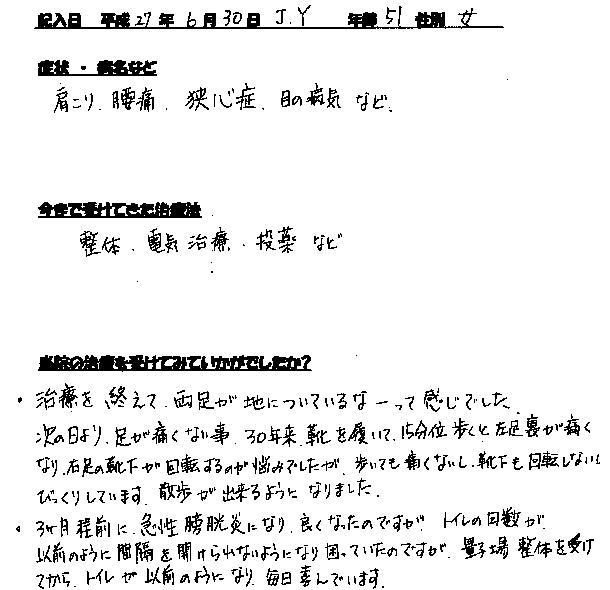 記入日 平成27年6月30日 J.Y 年齢51 性別 女
症状・病名など
肩こり、腰痛、狭心症、目の病気 など、
今まで受けてきた治療法
整体、電気治療、投薬 など
当院の治療を受けてみていかがでしたか？
・治療を終えて、両足が地についているなーって感じでした。
次の日より、足が痛くない事、30年来、靴を履いて、15分位歩くと左足裏が痛く
なり、右足の靴下が回転するのが悩みでしたが、歩いても痛くないし、靴下も回転しないし
びっくりしています。散歩が出来るようになりました。
・3ヶ月程前に、急性膀胱炎になり、良くなったのですが トイレの回数が、
以前のように間隔を開けられないようになり困っていたのですが、量子場 整体を受け
てから、トイレが以前のようになり、毎日喜んでいます。